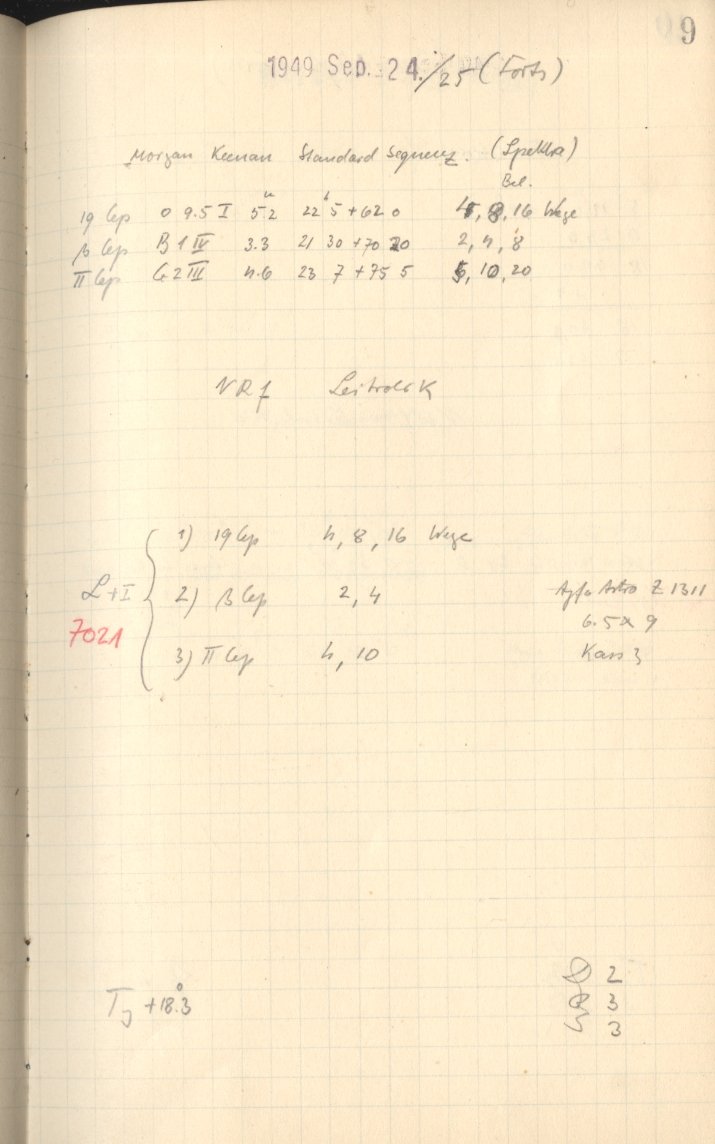 9
1949 Sep. 24./25 (Forts)
Morgan Keenan Standard Sequenz. (Spektra)
Bel.
19 Cep O 9.5 I 5.2 22 5 +62 0 4, 8, 16 Wege
β Cep B 1 IV 3.3 21 30 +70 20 2, 4, 8
π Cep G 2 III 4.6 23 7 +75 5 5, 10, 20
1) 19 Cep 4, 8, 16 Wege
L+I 2) β Cep 2, 4 Agfa Astro Z 1311
7021 6.5 x 9
3) π Cep 4, 10 Kass 3
+18.3
2
3
3